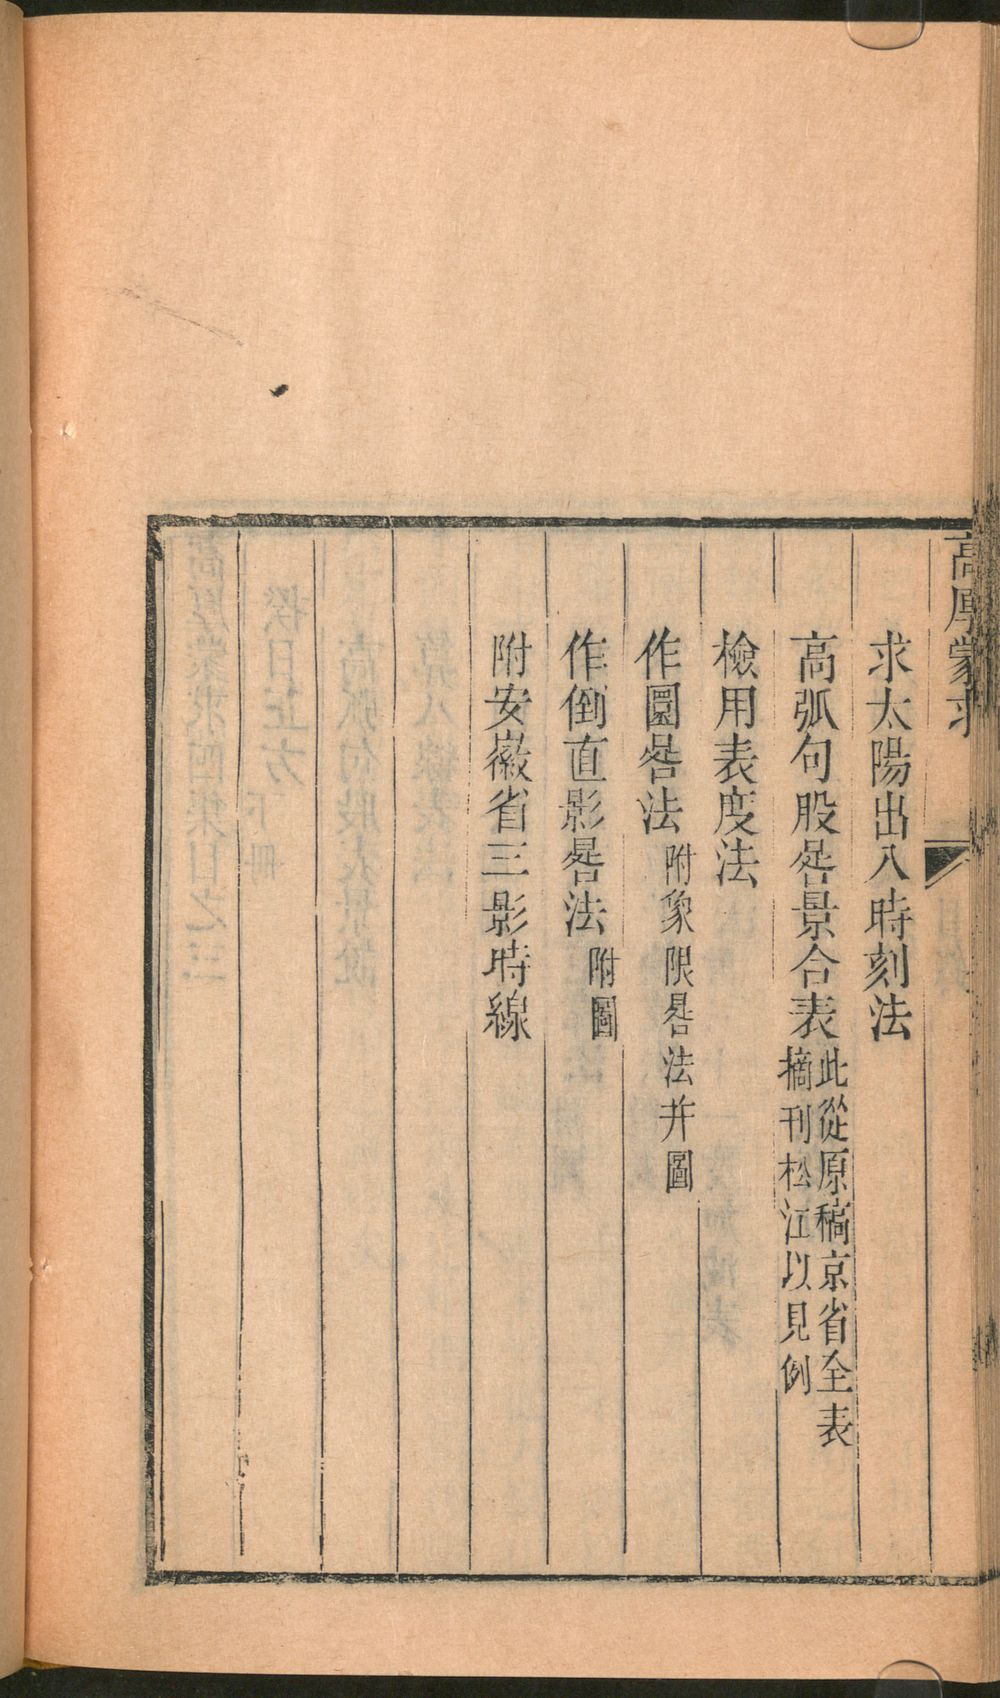 高厚蒙求
求太陽出入時刻法
高弧句股晷景合表此從原稿京省全表
摘刊松江以見例
檢用表度法
作圓晷法附象限晷法并圖
作倒直影晷法附圖
附安徽省三影時線